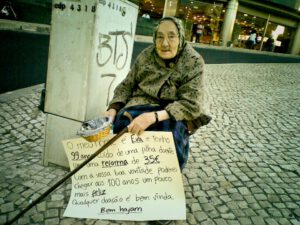 edp 4318
BTS
O meu nome é Eva e tenho
99 anos. Cuido de uma filha doente
uma reforma de 35€
Com a vossa boa vontade poderei
chegar aos 100 anos um pouco
mais feliz
Qualquer doação é bem vinda.
Bem hajam